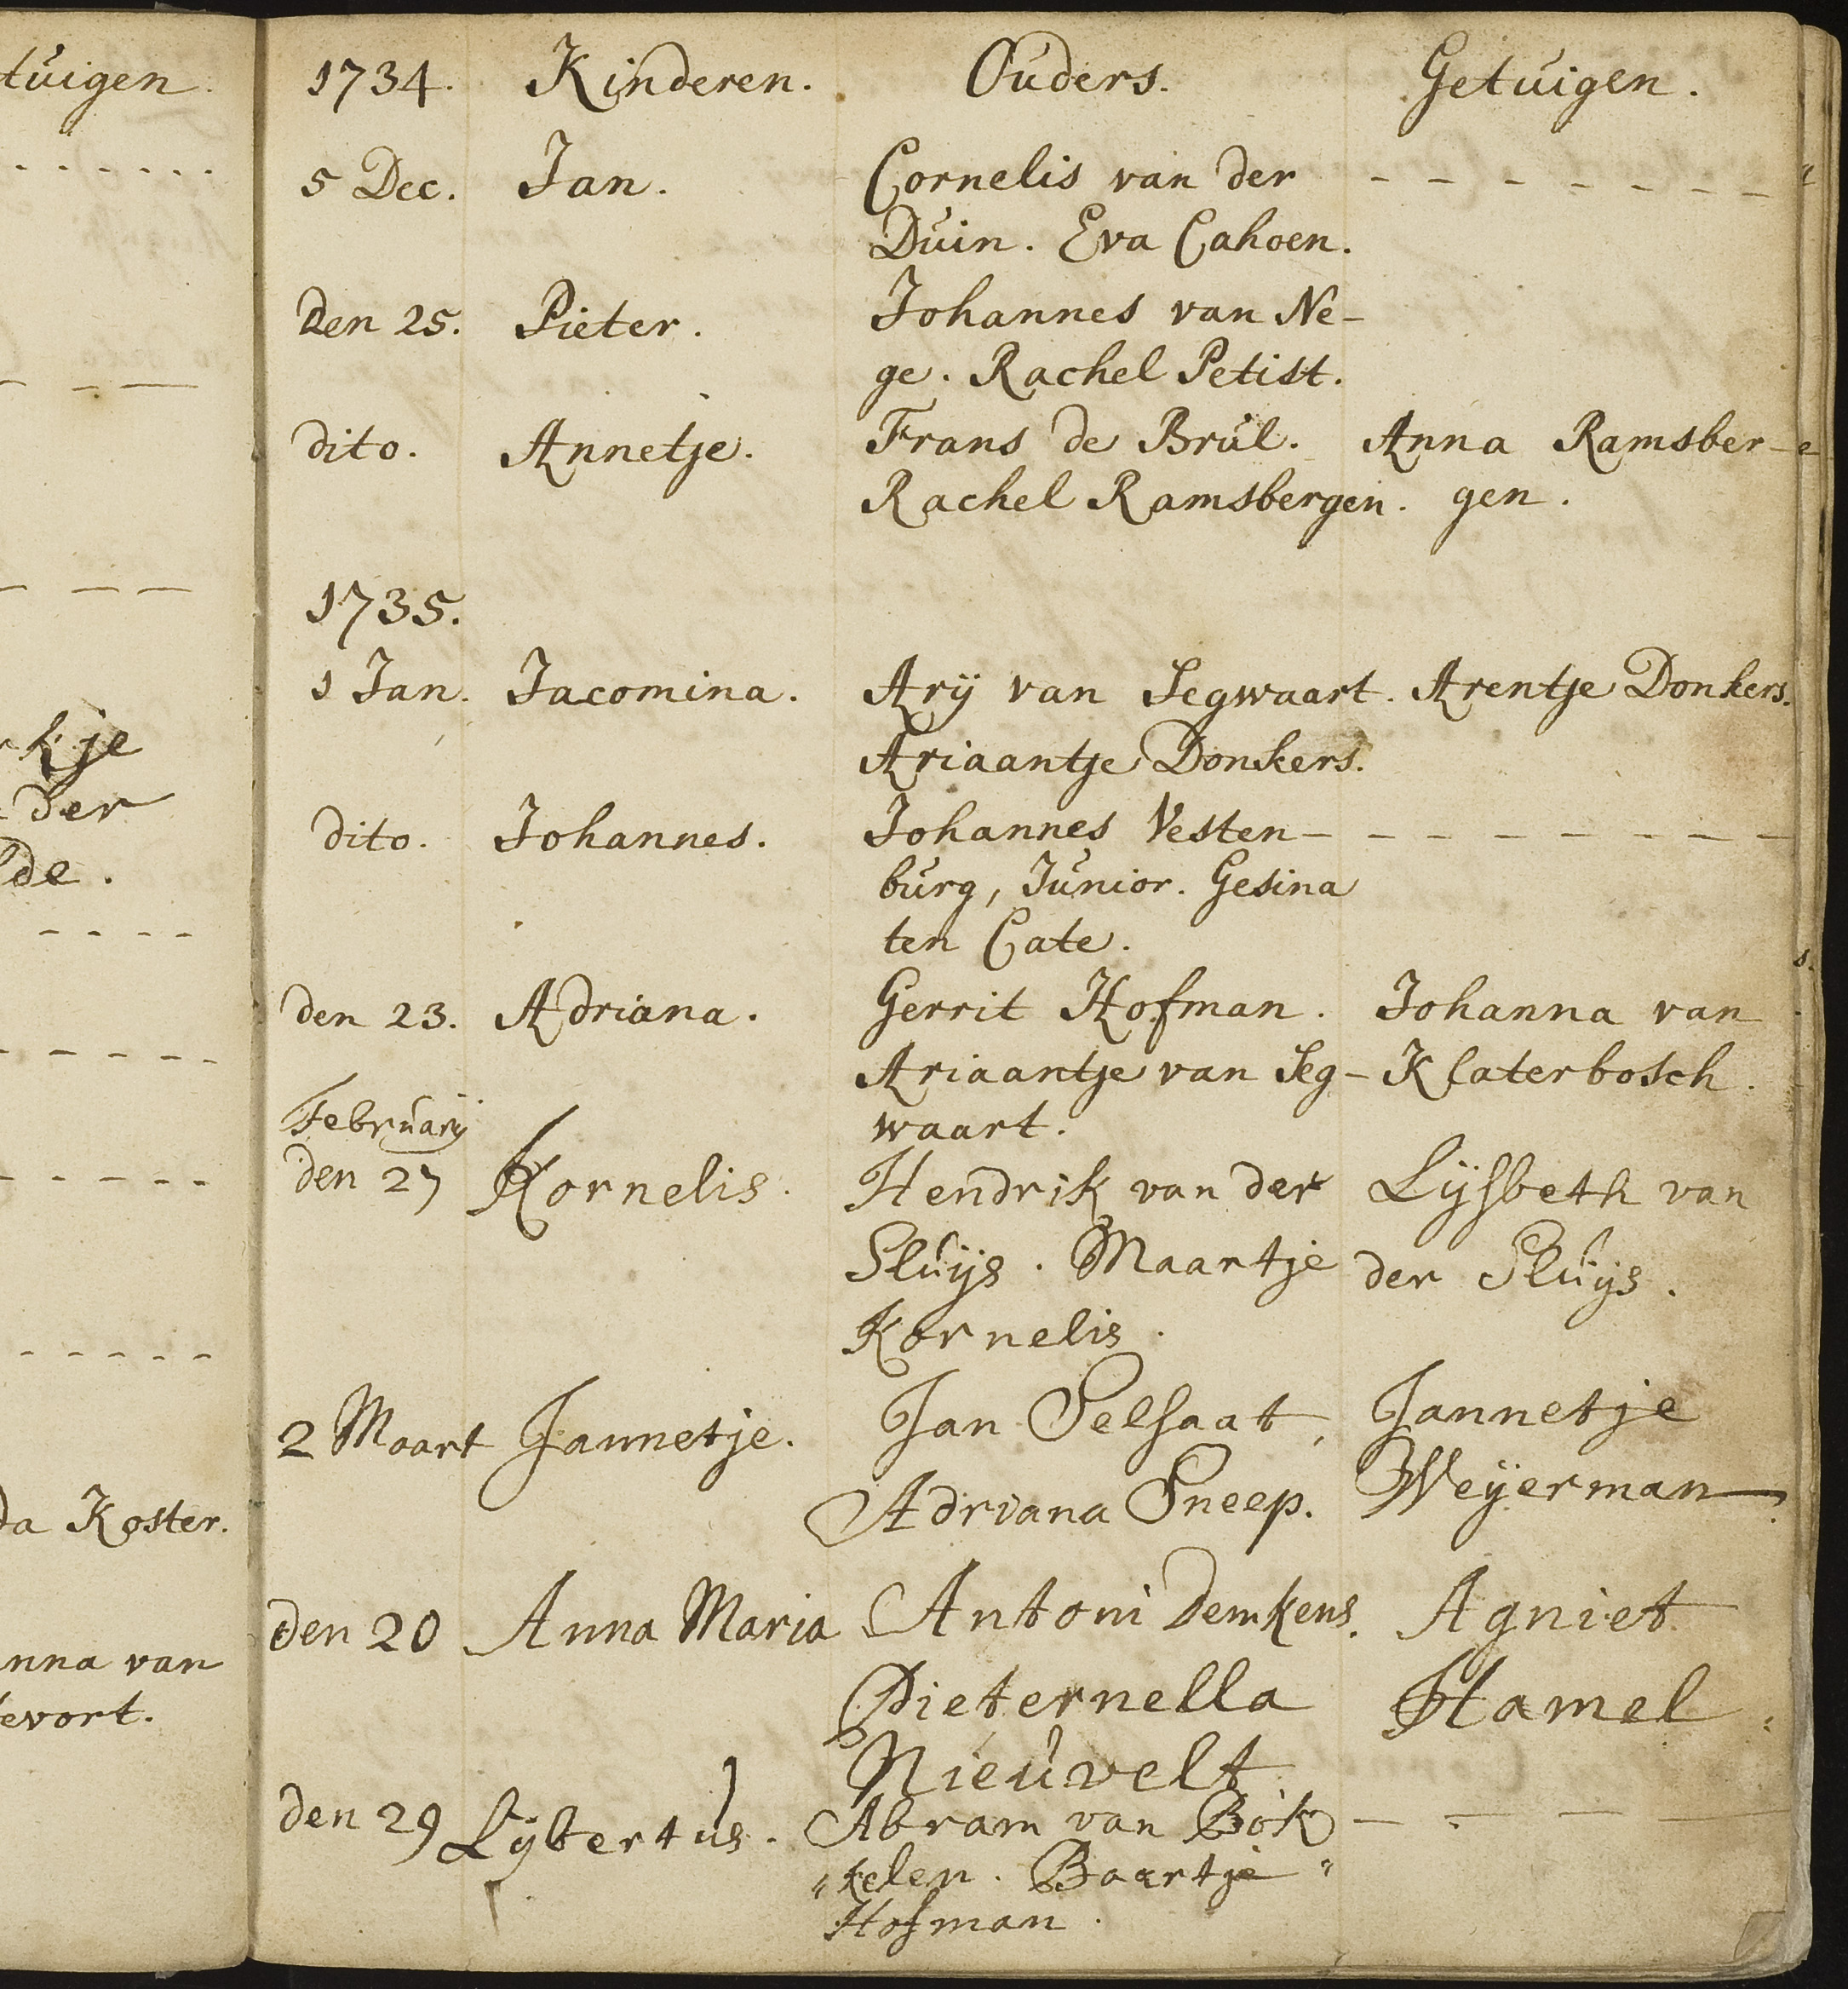 tuigen.
kje
der
de.
da Koster.
nna van
evort.
1734. Kinderen. Ouders. Getuigen.
5 Dec. Jan. Cornelis van der - - - - - - -
Duin. Eva Cahoen.
Den 25. Pieter. Johannes van Ne-
ge. Rachel Petist.
dito. Annetje. Frans de Brúl. Anna Ramsber-
Rachel Ramsbergen. gen.
1735.
1 Jan. Jacomina. Arÿ van Segwaart. Arentje Donkers.
Ariaantje Donkers.
dito. Johannes. Johannes Vesten- - - - - - - -
burg, Junior. Gesina
ten Cate.
den 23. Adriana. Gerrit Hofman. Johanna van
Ariaantje van Seg- Klaterbosch.
waart.
Februarÿ
den 27 Kornelis. Hendrik van der Lÿsbeth van
Sluÿs. Maartje der Sluÿs.
Kornelis.
2 Maart Jannetje. Jan Selsaat, Jannetje
Adriana Sneep. Weÿerman.
Den 20 Anna Maria Antoni Demkens. Agniet
Pieternella Hamel.
Nieuvelt
den 29 Lÿbertus. Abram van Bok - - - -
"kelen. Baartje "
Hofman.